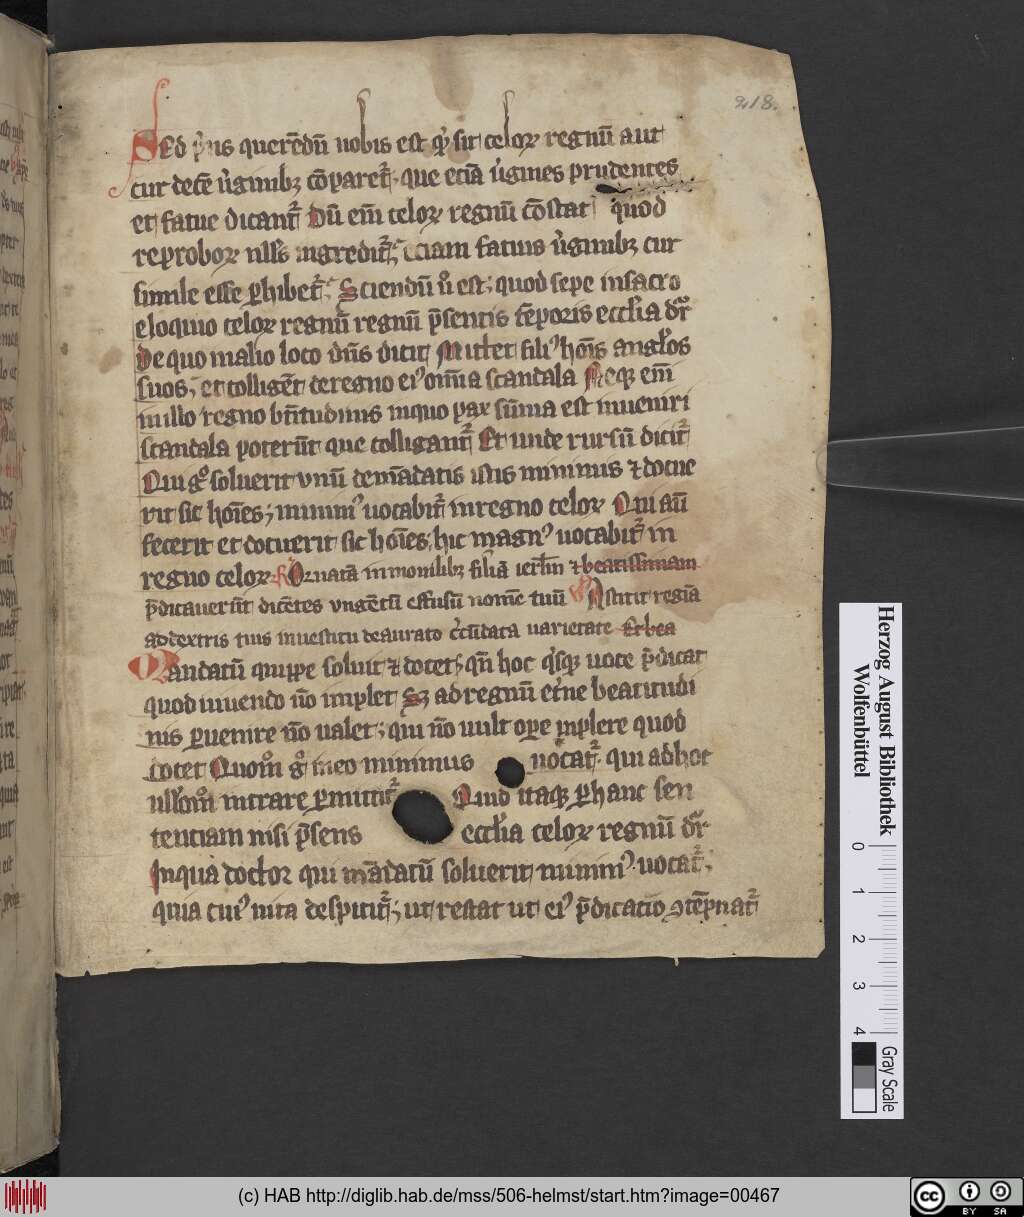 218.
Sed p̓us querēdū nobis est q̓ sit celoꝝ regnū aut
cur decē ṽginibꝫ cōparet᷑. que eciā ṽgines prudentes
et fatue dicant᷑ Dū em̄ celoꝝ regnū cōstat quod
reproboꝝ nll̓s ingredit᷑; eciam fatuis ṽginibꝫ cur
simile esse ꝑhibet᷑. Sciendū ů est; quod sepe insacro
eloquio celoꝝ regnū regnū p̄sentis tēporis eccl̓ia dr̄
De quo in alio loco dn̄s dicit Mittet fili᷒ hoīs angl̓os
suos; et colligēt de regno ei᷒ om̄ia scandala Neqꝫ em̄
inillo regno bt̄itudinis inquo pax sūma est inueniri
scandala poterūt que colligant᷑ Et unde rursū dicit᷑
Qui gͦ soluerit vnū demādatis istis minimis ⁊ docue
rit sic hoīes; minim᷒ uocabit᷑ inregno celoꝝ Qui aū
fecerit et docuerit sic hoīes, hic magn᷒ uocabit᷑ in
regno celoꝝ. R̸ Ornatā inmonilibꝫ filiā ierl̓m ⁊ beatissimam
p̄dicauerūt dicētes vngētū effusū nomē tuū V̸ Astitit regīa
adextris tuis inuestitu deaurato c̓cūdata uarietate Et bea
Mandatū quippe soluit ⁊ docet; qn̄ hoc q̓sqꝫ uoce p̄dicat
quod uiuendo nō implet Sꝫ ad regnū et̓ne beatitudi
nis ꝑuenire nō ualet; qui nō uult oꝑe inplere quod
docet Quom̊ g̊ in eo minimus uocat᷑. qui ad hoc
ull̓om̊ intrare ꝑmittit᷑ Quid itaqꝫ ꝑ hanc sen
tenciam nisi p̄sens eccl̓ia celoꝝ regnū dr̄
Inqua doctor qui mādatū soluerit minim᷒ uocat᷑;
quia cui᷒ uita despicit᷑; ut restat ut ei᷒ p̄dicatio ꝯtēpnat᷑
Herzog August Bibliothek
Wolfenbüttel
0 1 2 3 4
Gray Scale
(c) HAB http://diglib.hab.de/mss/506-helmst/start.htm?image=00467
cc BY SA